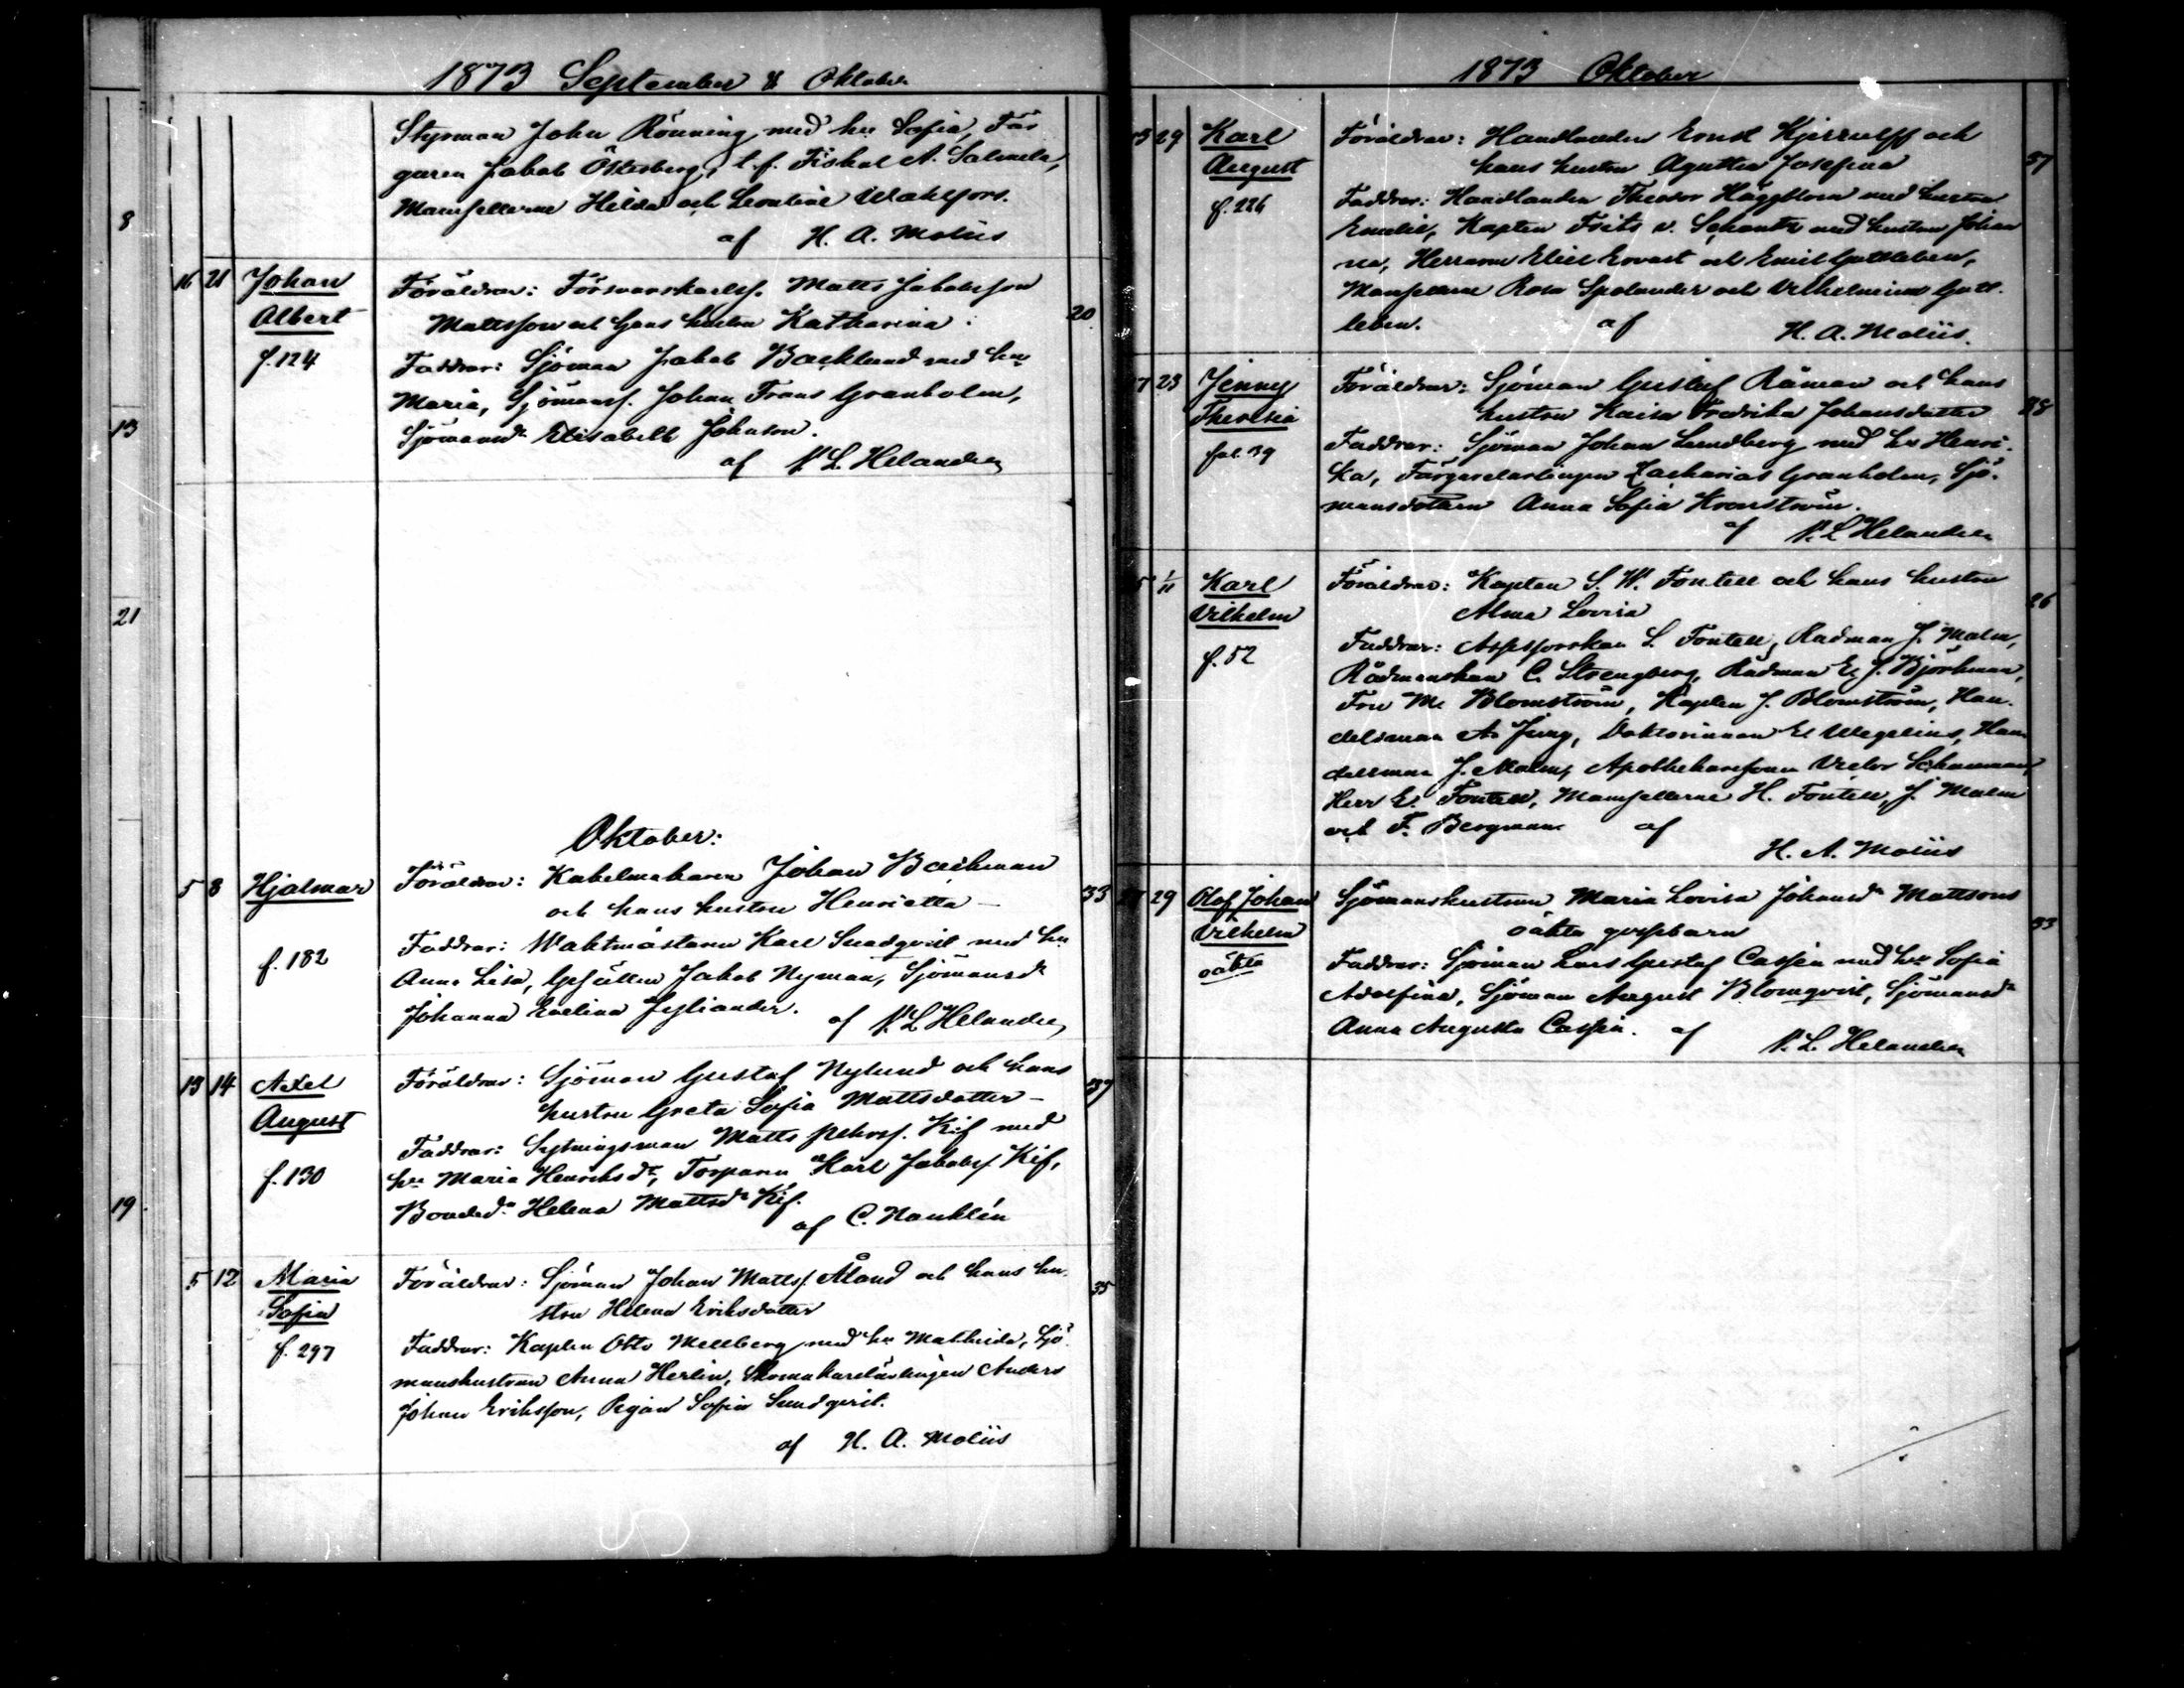 1873 September & Oktober
Styrman John Rönning med hu Sofia, Fär
garen Jakob Österberg, t.f. Fiskal A. Salmela,
Mamsellerne Hilda och Leontine Wahlfors.
af H. A. Moliis
8
16 21 Johan Albert f. 124
Föräldrar: Försvarskarlss. Matts Jakobsson
Mattsson och hans hustru Katharina:
20
Faddrar: Sjöman Jakob Backlund med hu
Maria, Sjömanss. Johan Frans Granholm,
Sjömansdr Elisabeth Johnson.
af N. L. Helander
13
21
Oktober:
5 8 Hjalmar f. 182
Föräldrar: Kakelmakaren Johan Backman
och hans hustru Henrietta –
33
Faddrar: Waktmästaren Karl Sundqvist med hu
Anna Lisa, Gesällen Jakob Nyman, Sjömansdr
Johanna Evelina
af N. L. Helander
13 14 Axel August f. 130
Föräldrar: Sjöman Gustaf Nylund och hans
hustru Greta Sofia Mattsdotter –
37
Faddrar: Sytningsman Matts Pehrss. Kif med
hu Maria Henriksdr, Torparen Karl Jakobss. Kif,
Bondedr Helena Mattsdr Kif.
af C. Nanklén
19
5 12 Maria Sofia f. 297
Föräldrar: Sjöman Johan Mattss. Åland och hans hu
stru Helena Eriksdotter
35
Faddrar: Kapten Otto Mellberg med hu Mathilda, Sjö
manshustrun Anna Herlin, Skomakarelärlingen Anders
Johan Eriksson, Pigan Sofia Sundqvist.
af H. A. Moliis
1873 Oktober
29 Karl August f. 226
Föräldrar: Handlanden Ernst Kjerrulff och
hans hustru Agatha Josefina
37
Faddrar: Handlanden Theodor Häggblom med hustru
Emelie, Kapten Frits v. Schantz med hustru Johan
na, Herrarne Eliel Ervast och Emil Gottleben,
Mamsellerne Rosa Spolander och Vilhelmina Gott-
leben. af H. A. Moliis.
23 Jenny Theresia fol. 39
Föräldrar: Sjöman Gustaf Råman och hans
hustru Kaisa Fredrika Johansdotter
Faddrar: Sjöman Johan Lundberg med hu Henri-
ka, Färgarelärlingen Zacharias Granholm, Sjö-
mansdottern Anna Sofia Kronström.
af N. L. Helander
1/11 Karl Vilhelm f. 52
Föräldrar: Kapten S. W. Fontell och hans hustru
Alma Lovisa
26
Faddrar: Assessorskan L. Fontell, Rådman J. Malm,
Rådmanskan C. Strengberg, Rådman E. J. Björkman,
Fru M. Blomström, Kapten J. Blomström, Han-
delsman A. Jung, Doktorinnan E. Wegelius, Han
delsman J. Malm, Apothekaresonen Victor Schauman,
Herr E. Fontell, Mamsellerne H. Fontell, J. Malm
och F. Bergman af
H. A. Moliis
29 Olof Johan Vilhelm oäkta
Sjömanshustrun Maria Lovisa Johansdr Mattsons
oäkta gossebarn
33
Faddrar: Sjöman Lars Gustaf Cassén med hu Sofia
Adolfina, Sjöman August Blomqvist, Sjömansdr
Anna Augusta Cassén. af N. L. Helander